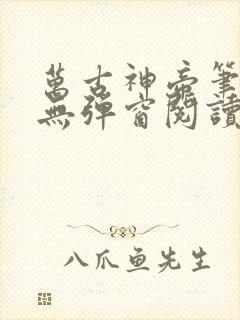 萬古神帝筆
無彈窗閱讀
八爪鱼先生